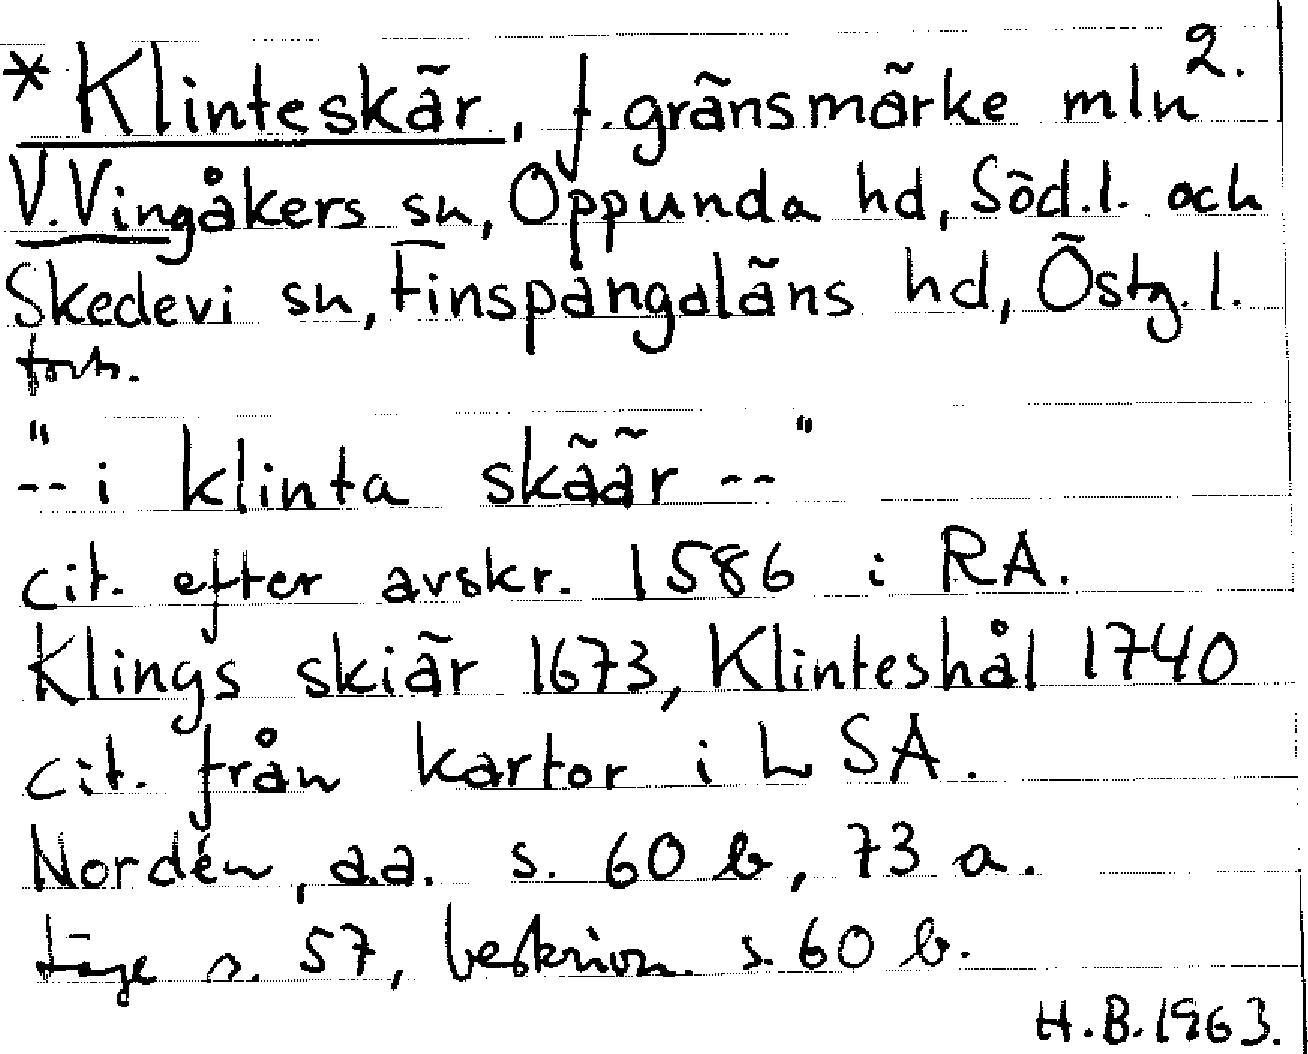 2.
*Klinteskär, f. gränsmärke mln
V. Vingåkers sn, Oppunda hd, Söd.l. och
Skedevi sn, Finspångaläns hd, Östg.l.
forts.
"-- i klinta skäär --"
cit. efter avskr. 1586 i RA.
Klings skiär 1673, Klinteshål 1740
cit. från kartor i LSA.
Nordén, a.a. s. 60 b, 73 a.
Läge s. 57, beskrivn. s. 60 b.
H.B. 1963.